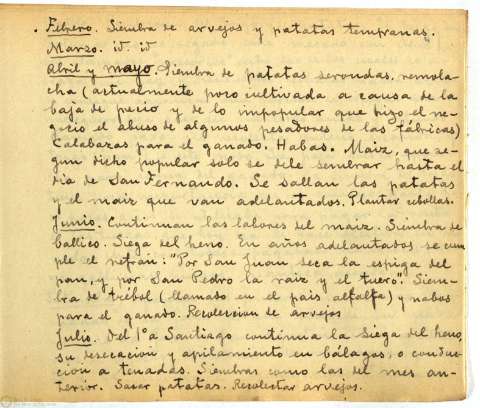 . Febrero. Siembra de arvejos y patatas tempranas.
Marzo. id. id
Abril y mayo. Siembra de patatas serondas, remola-
cha (actualmente poco cultivada a causa de la
baja de precio y de lo impopular que hizo el ne-
gocio el abuso de algunos pesadores de las fábricas)
Calabazas para el ganado. Habas. Maiz, que se-
gun dicho popular solo se debe sembrar hasta el
dia de San Fernando. Se sallan las patatas
y el maiz que van adelantados. Plantar cebollas.
Junio. Continuan las labores del maiz. Siembra de
ballico. Siega del heno. En años adelantados se cum-
ple el refrán: "Por San Juan seca la espiga del
pan, y, por San Pedro la raiz y el tuero". Siem-
bra de trébol (llamado en el pais alfalfa) y nabos
para el ganado. Recoleccion de arvejos
Julio. Del 1º a Santiago continúa la Siega del heno,
su desecacion y apilamiento en bálagos, o conduc-
cion a tenadas. Siembras como las del mes an-
terior. Sacar patatas. Recolectar arvejos.